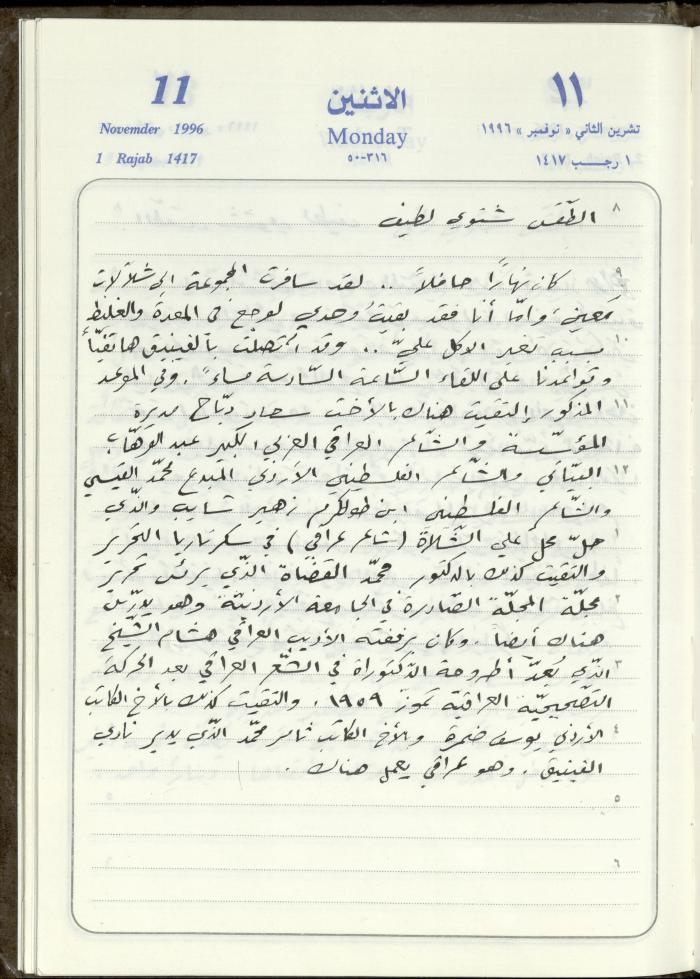 11
الاثنين
١١
Novemder 1996
Monday
تشرين الثاني « نوفمبر » ١٩٩٦
1 Rajab 1417
٣١٦-٥٠
١ رجــب ١٤١٧
٨ الطّقس شتوي لطيف
٩ كان نهارًا حافلاً .. لقد سافرت المجموعة الى شلاّلات
مَعين، وامّا أنا فقد بقيتُ وحدي لوجع في المعدة والغليظ
١٠ بسبب تغير الاكل عليّ .. وقد اتّصلت بالفينيق هاتفيّاً
وتواعدنا على اللقاء السّاعة السّادسة مساءً. وفي الموعد
١١ المذكور إلتقيت هناك بالأخت سعاد دبّاح مديرة
المؤسّسة والشّاعر العراقي العربي الكبير عبد الوهّاب
١٢ البيّاتي والشّاعر الفلسطيني الأردني المبدع محمّد القيسي
والشّاعر الفلسطيني ابن طولكرم زهير شايب والّذي
١ حلّ محل علي الشّلاة (شاعر عراقي) في سكرتاريا التحرير
والتقيت كذلك بالدكتور محمّد القضاة الّذي يرئس تحرير
٢ مجلّة المجلّة الصّادرة في الجامعة الأردنيّة وهو يدرّس
هناك أيضاً. وكان برفقته الأديب العراقي هشام الشّيخ
٣ الّذي يُعدّ أطروحة الدّكتوراة في الشّعر العراقي بعد الحركة
التّصحيحيّة العراقية تموز ١٩٥٩. والتقيت كذلك بالأخ الكاتب
٤ الأردني يوسف ضمرة والأخ الكاتب ثامر محمّد الّذي يدير نادي
الفينيق. وهو عراقي يعمل هناك.
٥
٦